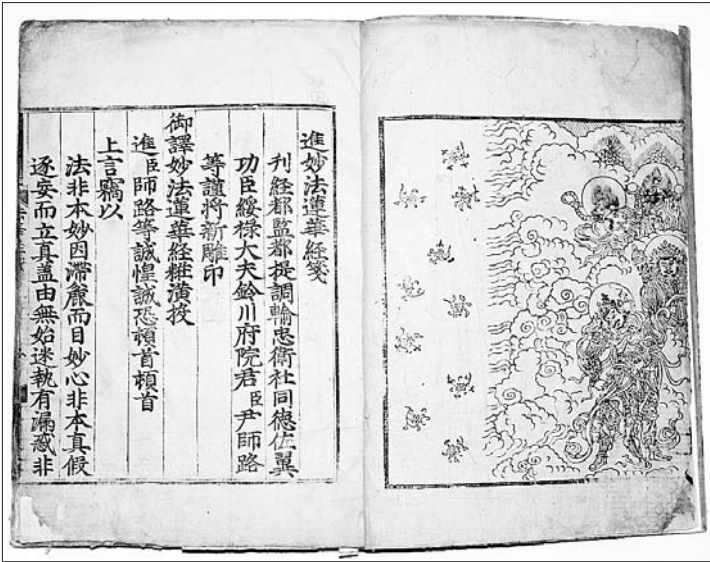 進妙法蓮華経箋
刋経都監都提調輸忠衛社同德佐翼
功臣綏祿大夫鈴川府院君臣尹師路
等謹将新雕印
御譯妙法蓮華経粧潢投
進臣師路等誠惶誠恐頓首頓首
上言竊以
法非本妙因滞麁而目妙心非本真假
逐妄而立真盖由無始迷執有漏惑非